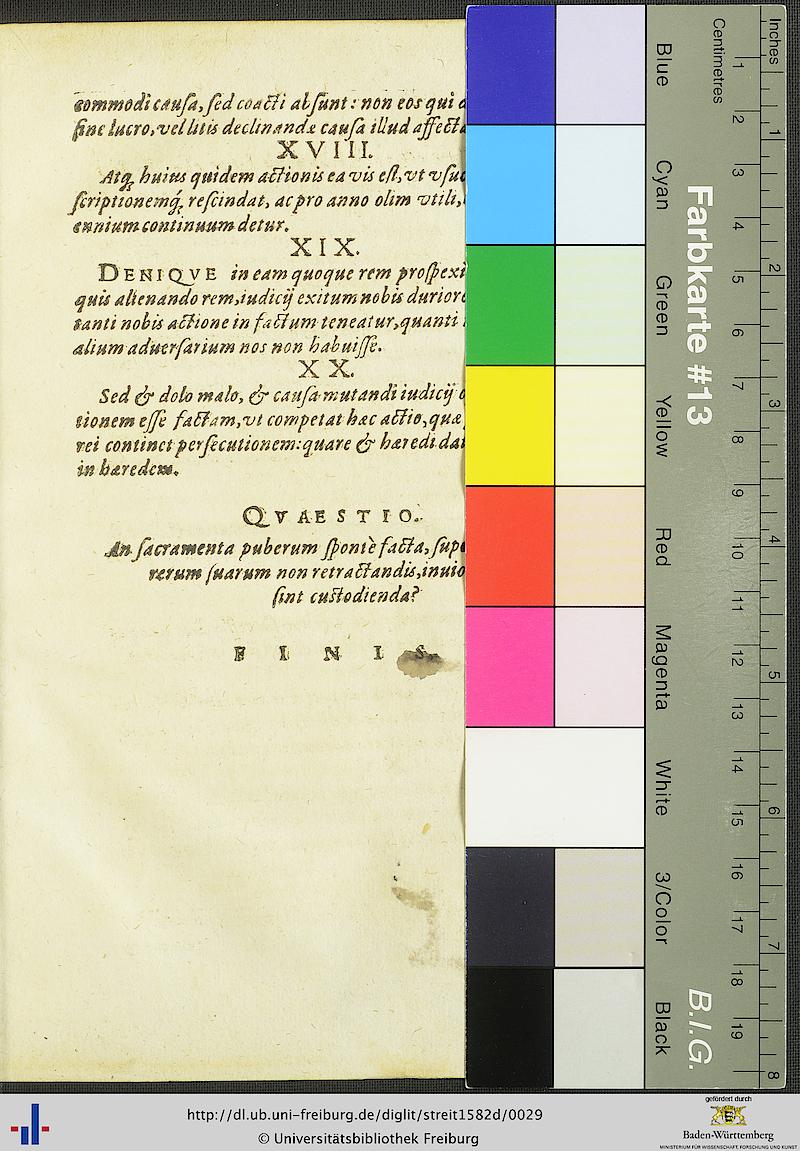 commodi causa, sed coacti absunt: non eos qui
sine lucro, vel litis declinandæ causa illud affecta
XVIII.
Atq; huius quidem actionis ea vis est, vt vsuc
scriptionemq́; rescindat, ac pro anno olim vtili,
ennium continuum detur.
XIX.
DENIQVE in eam quoque rem prospexi
quis alienando rem, iudicij exitum nobis duriore
tanti nobis actione in factum teneatur, quanti
alium aduersarium nos non habuisse.
XX.
Sed & dolo malo, & causa mutandi iudicij
tionem esse factam, vt competat hæc actio, quæ
rei continet persecutionem: quare & hæredi dat
in hæredem.
QVAESTIO.
An sacramenta puberum spontè facta, supe
rerum suarum non retractandis, inuio
sint custodienda?
FINIS.
Blue
Cyan
Green
Yellow
Red
Magenta
White
3/Color
Black
Farbkarte #13
B.I.G.
Centimetres
1 2 3 4 5 6 7 8 9 10 11 12 13 14 15 16 17 18 19
Inches
1 2 3 4 5 6 7 8
http://dl.ub.uni-freiburg.de/diglit/streit1582d/0029
© Universitätsbibliothek Freiburg
gefördert durch
Baden-Württemberg
MINISTERIUM FÜR WISSENSCHAFT, FORSCHUNG UND KUNST